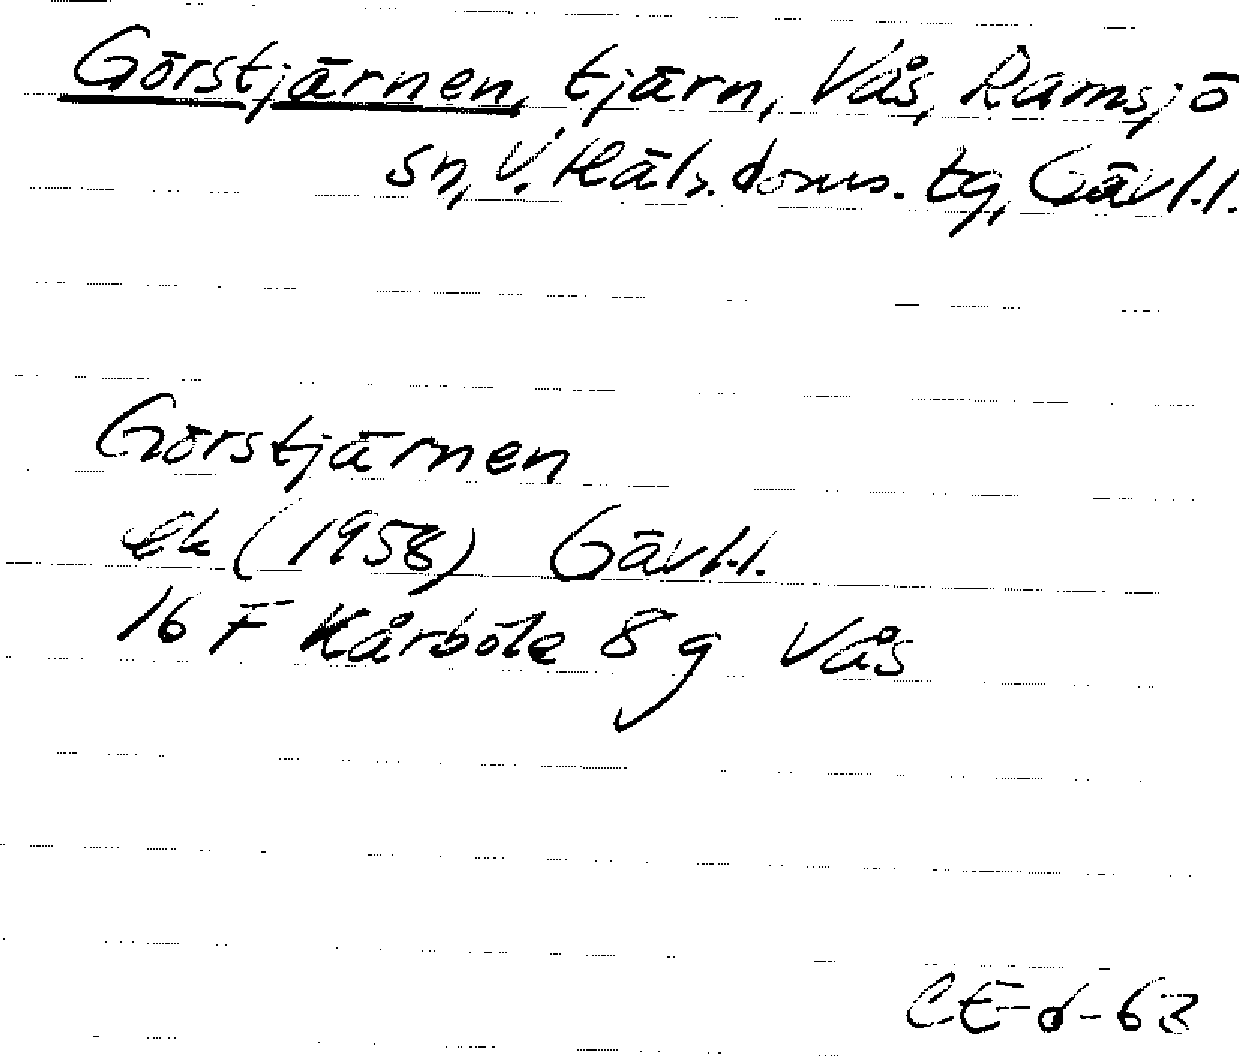 Görstjärnen, tjärn, Vås, Ramsjö
sn, V. Häls. doms. tg, Gävl.l.
Görstjärnen
ek (1958) Gävl.l.
16 F Kårböle 8 g Vås
CE-d-63